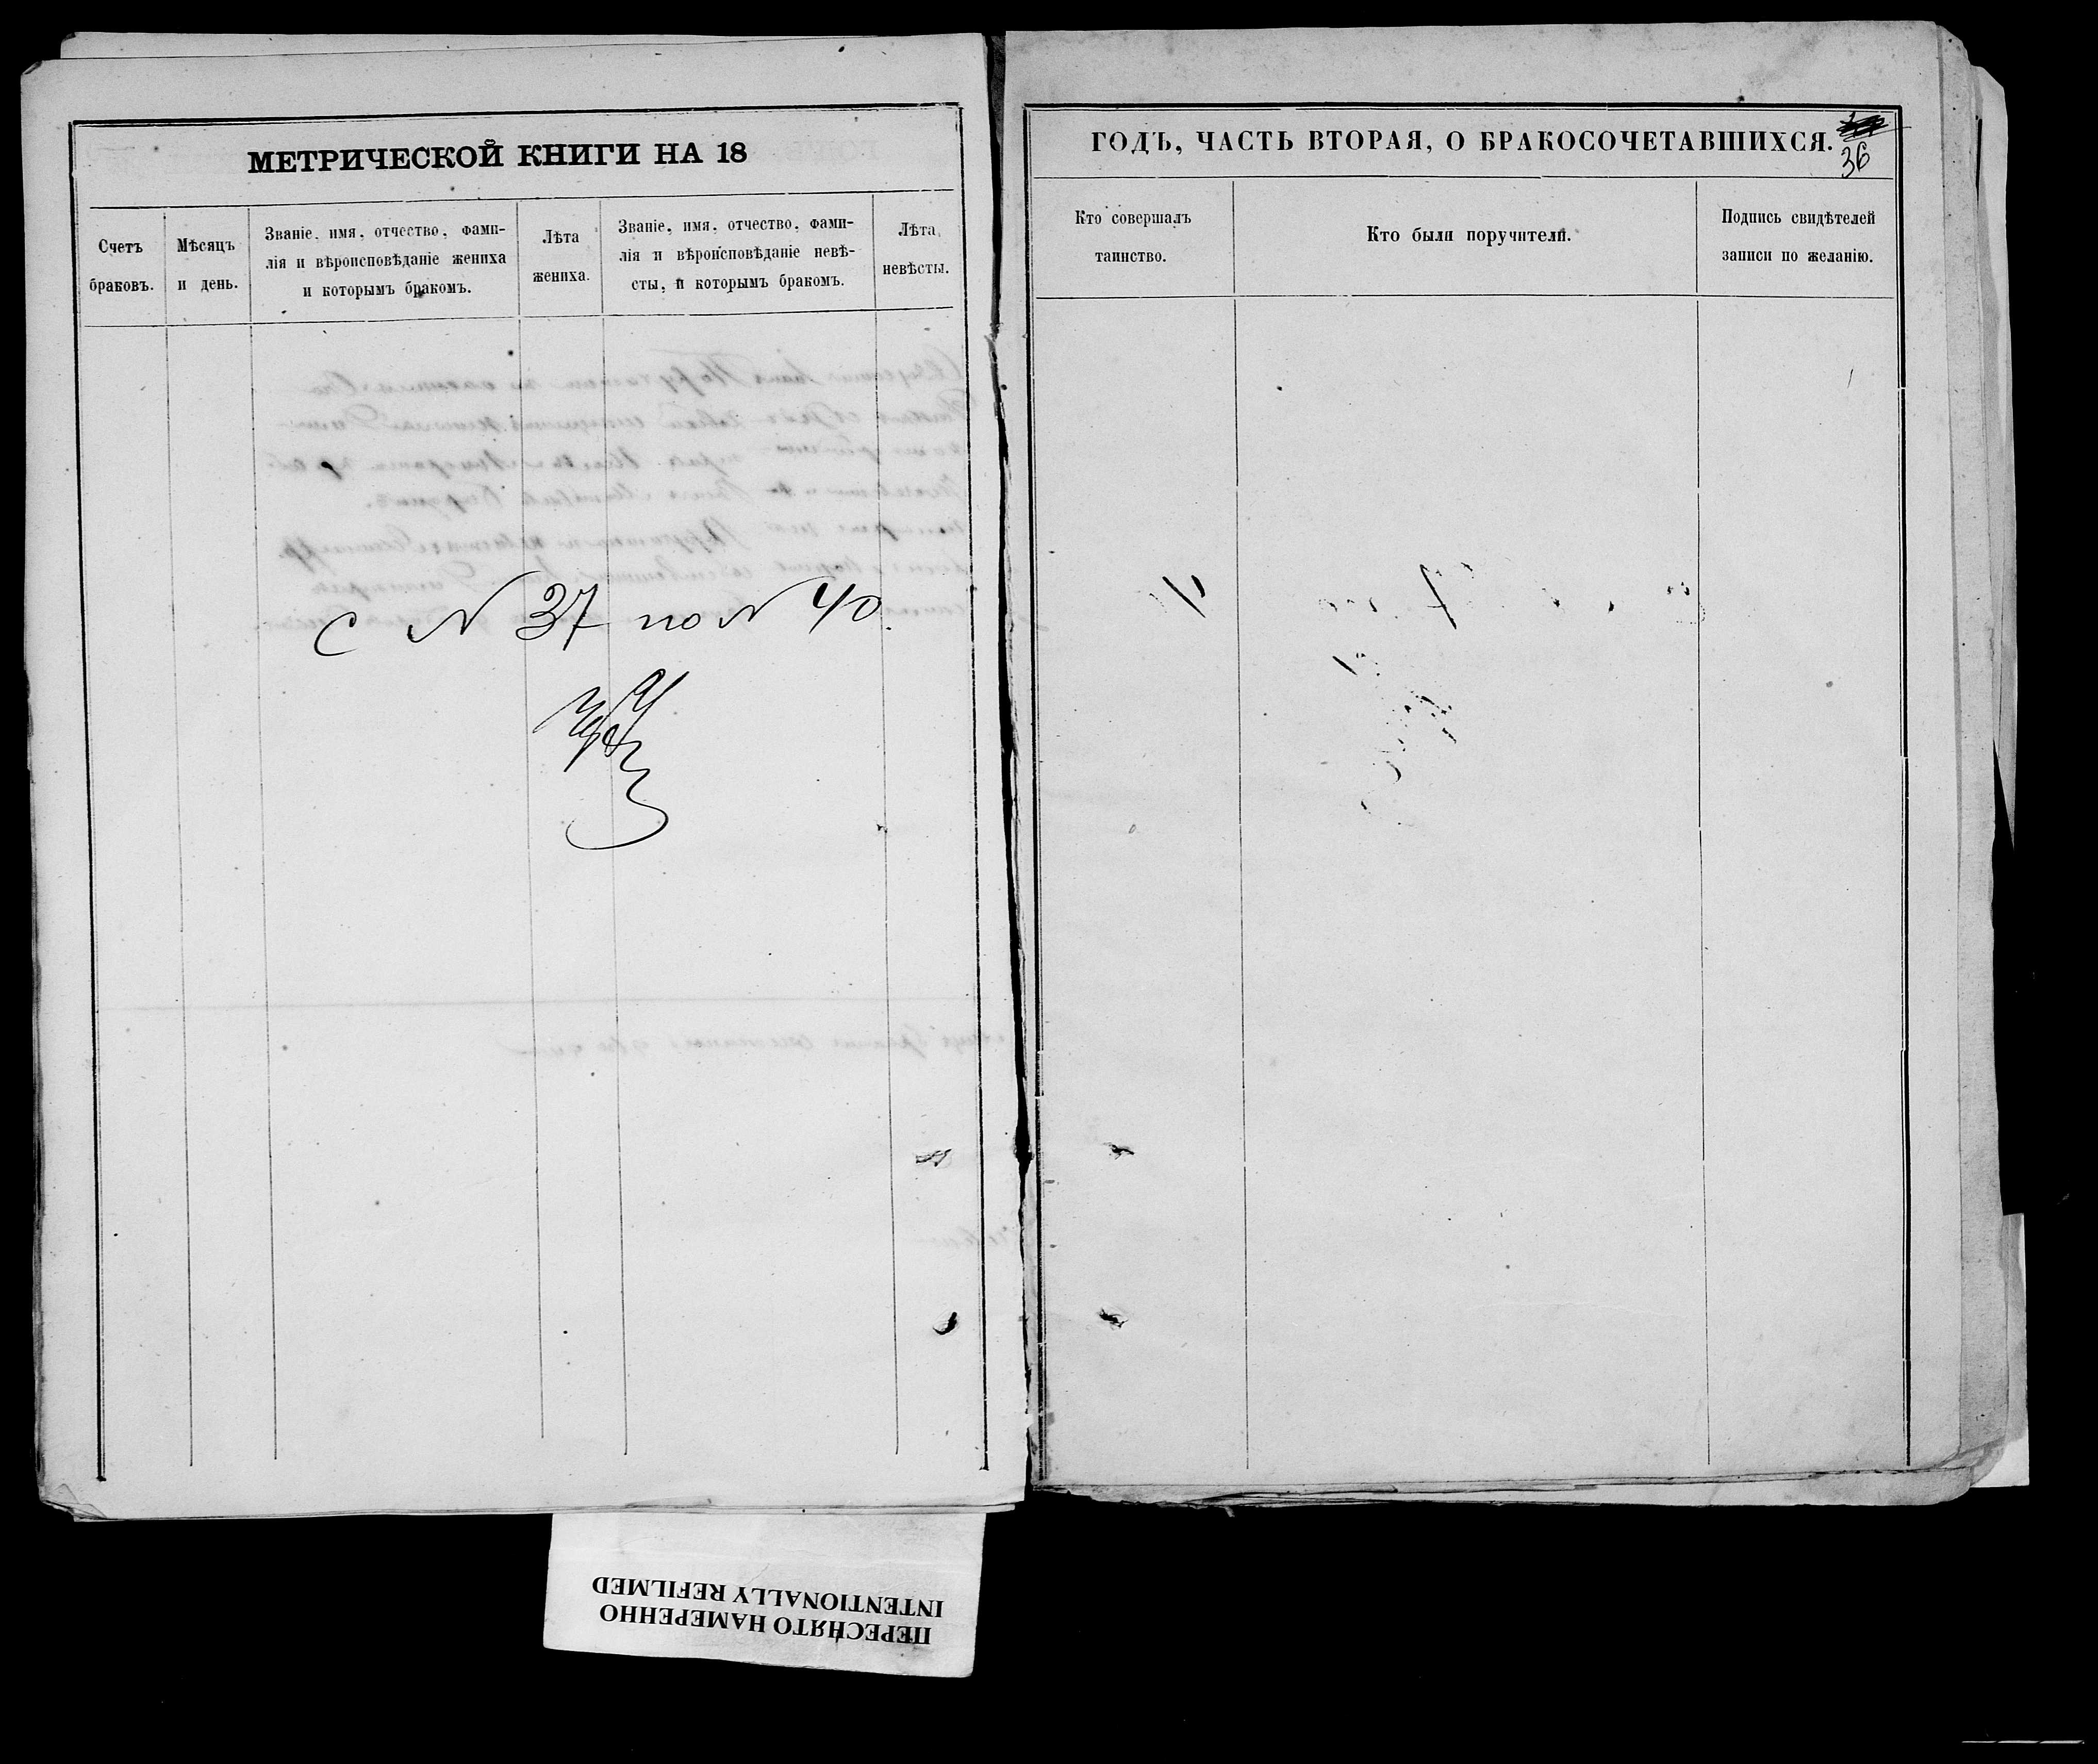 МЕТРИЧЕСКОЙ КНИГИ НА 18
Счетъ
браковъ.
Мѣсяцъ
и день.
Званіе, имя, отчество, фами-
лія и вѣроисповѣданіе жениха
и которымъ бракомъ.
Лѣта
жениха.
Званіе, имя, отчество, фами-
лія и вѣроисповѣданіе невѣ-
сты, и которымъ бракомъ.
Лѣта
невѣсты.
с № 37 по № 40.
ГОДЪ, ЧАСТЬ ВТОРАЯ, О БРАКОСОЧЕТАВШИХСЯ.
36
Кто совершалъ
таинство.
Кто были поручители.
Подпись свидѣтелей
записи по желанію.
ПЕРЕСНЯТО НАМЕРЕННО
INTENTIONALLY REFILMED